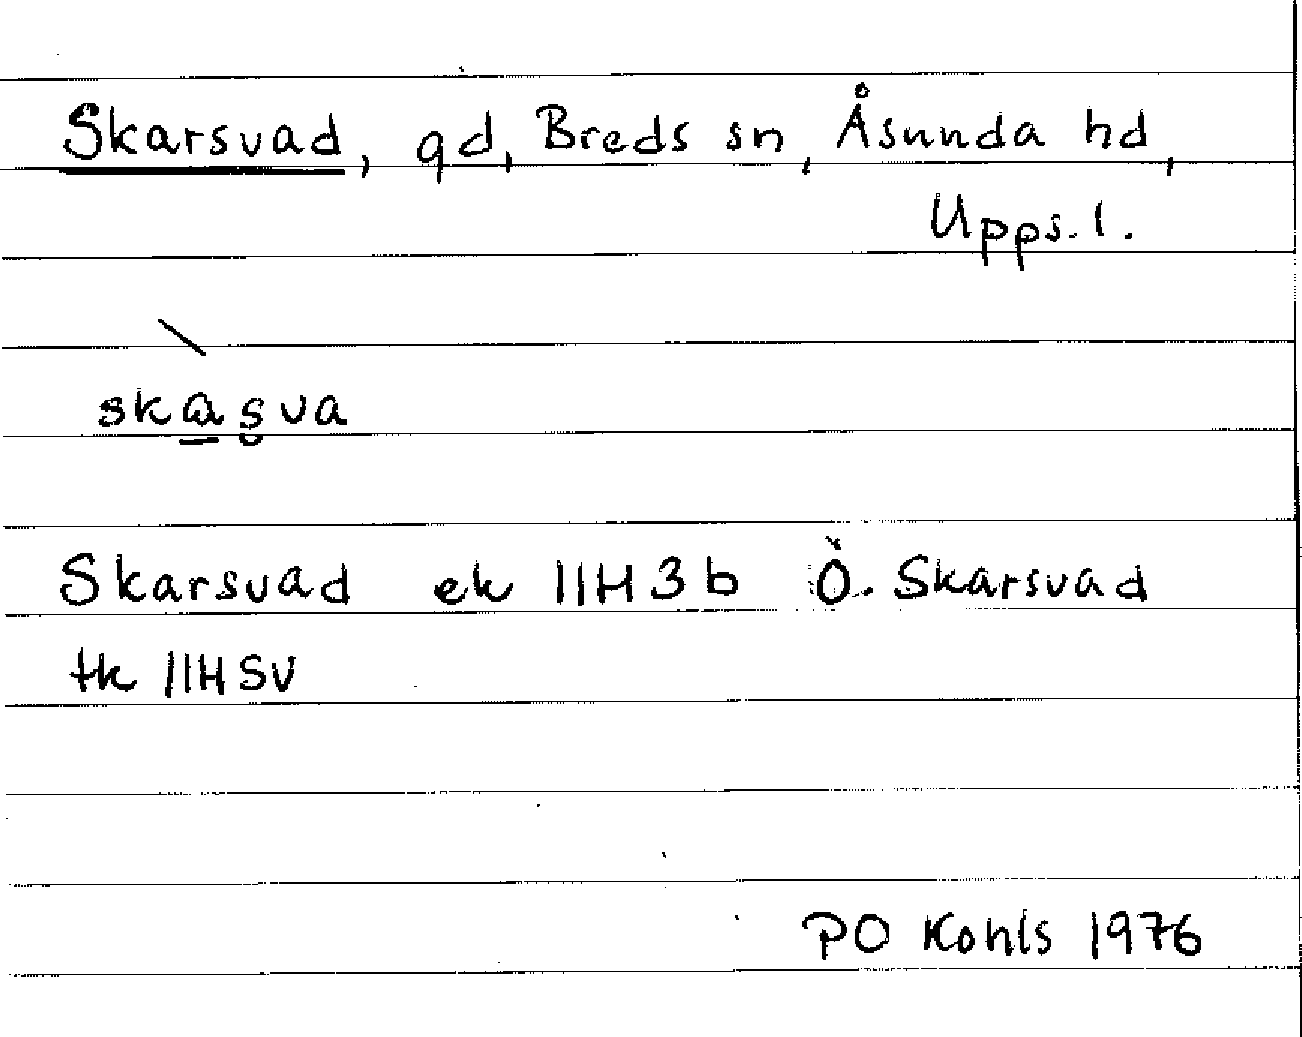 Skarsvad, gd, Breds sn, Åsunda hd,
Upps. l.
skasva
Skarsvad ek 11H3b Ö. Skarsvad
tk 11HSV
PO Kohls 1976